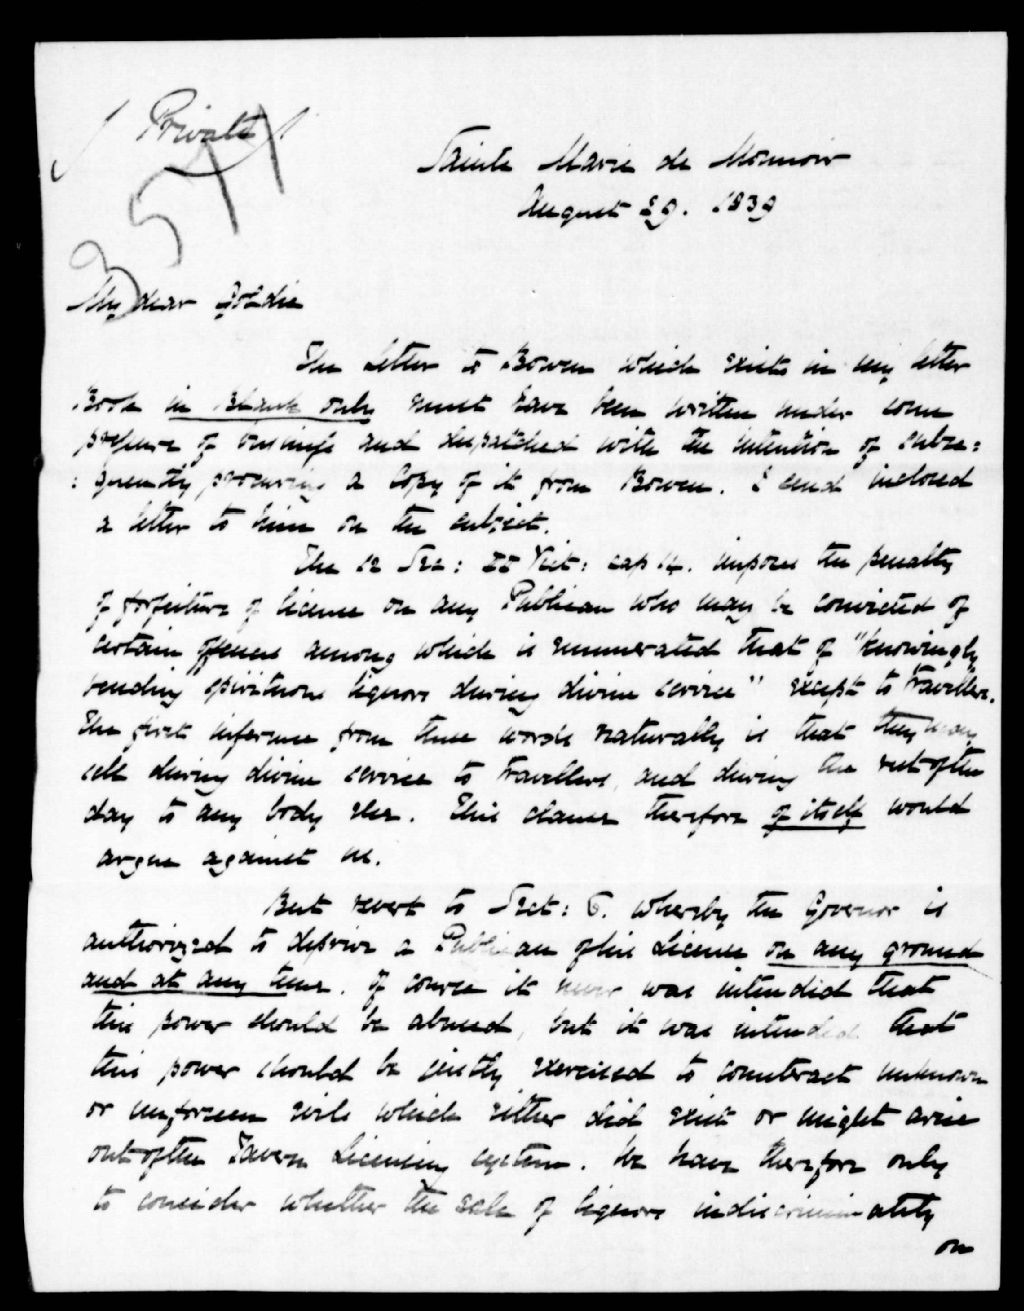 Private
3571
Sainte Marie de Monnoir
August 29. 1839
My dear Goldie
The Letter to Bowen which exists in my letter
Book in Blank only must have been written under some
pressure of business and despatched with the intention of subse:
:quently procuring a Copy of it from Bowen. I send inclosed
a letter to him on the subject.
The 12 Sec: II Vict: cap 14. imposes the penalty
of forfeiture of license on any Publican who may be convicted of
certain offences among which is enumerated that of "knowingly
vending spirituous liquors during divine service" except to Travellers.
The first inference from these words naturally is that they may
sell during divine service to Travellers, and during the rest of the
day to any body else. This clause therefore of itself would
argue against us.
But revert to Sect: 6. whereby the Governor is
authorized to deprive a Publican of his License on any ground
and at any time. Of course it never was intended that
this power should be abused, but it was intended that
this power should be justly exercised to counteract unknown
or unforeseen evils which either did exist or might arise
out of the Tavern Licensing system. We have therefore only
to consider whether the sale of liquors indiscriminately
on